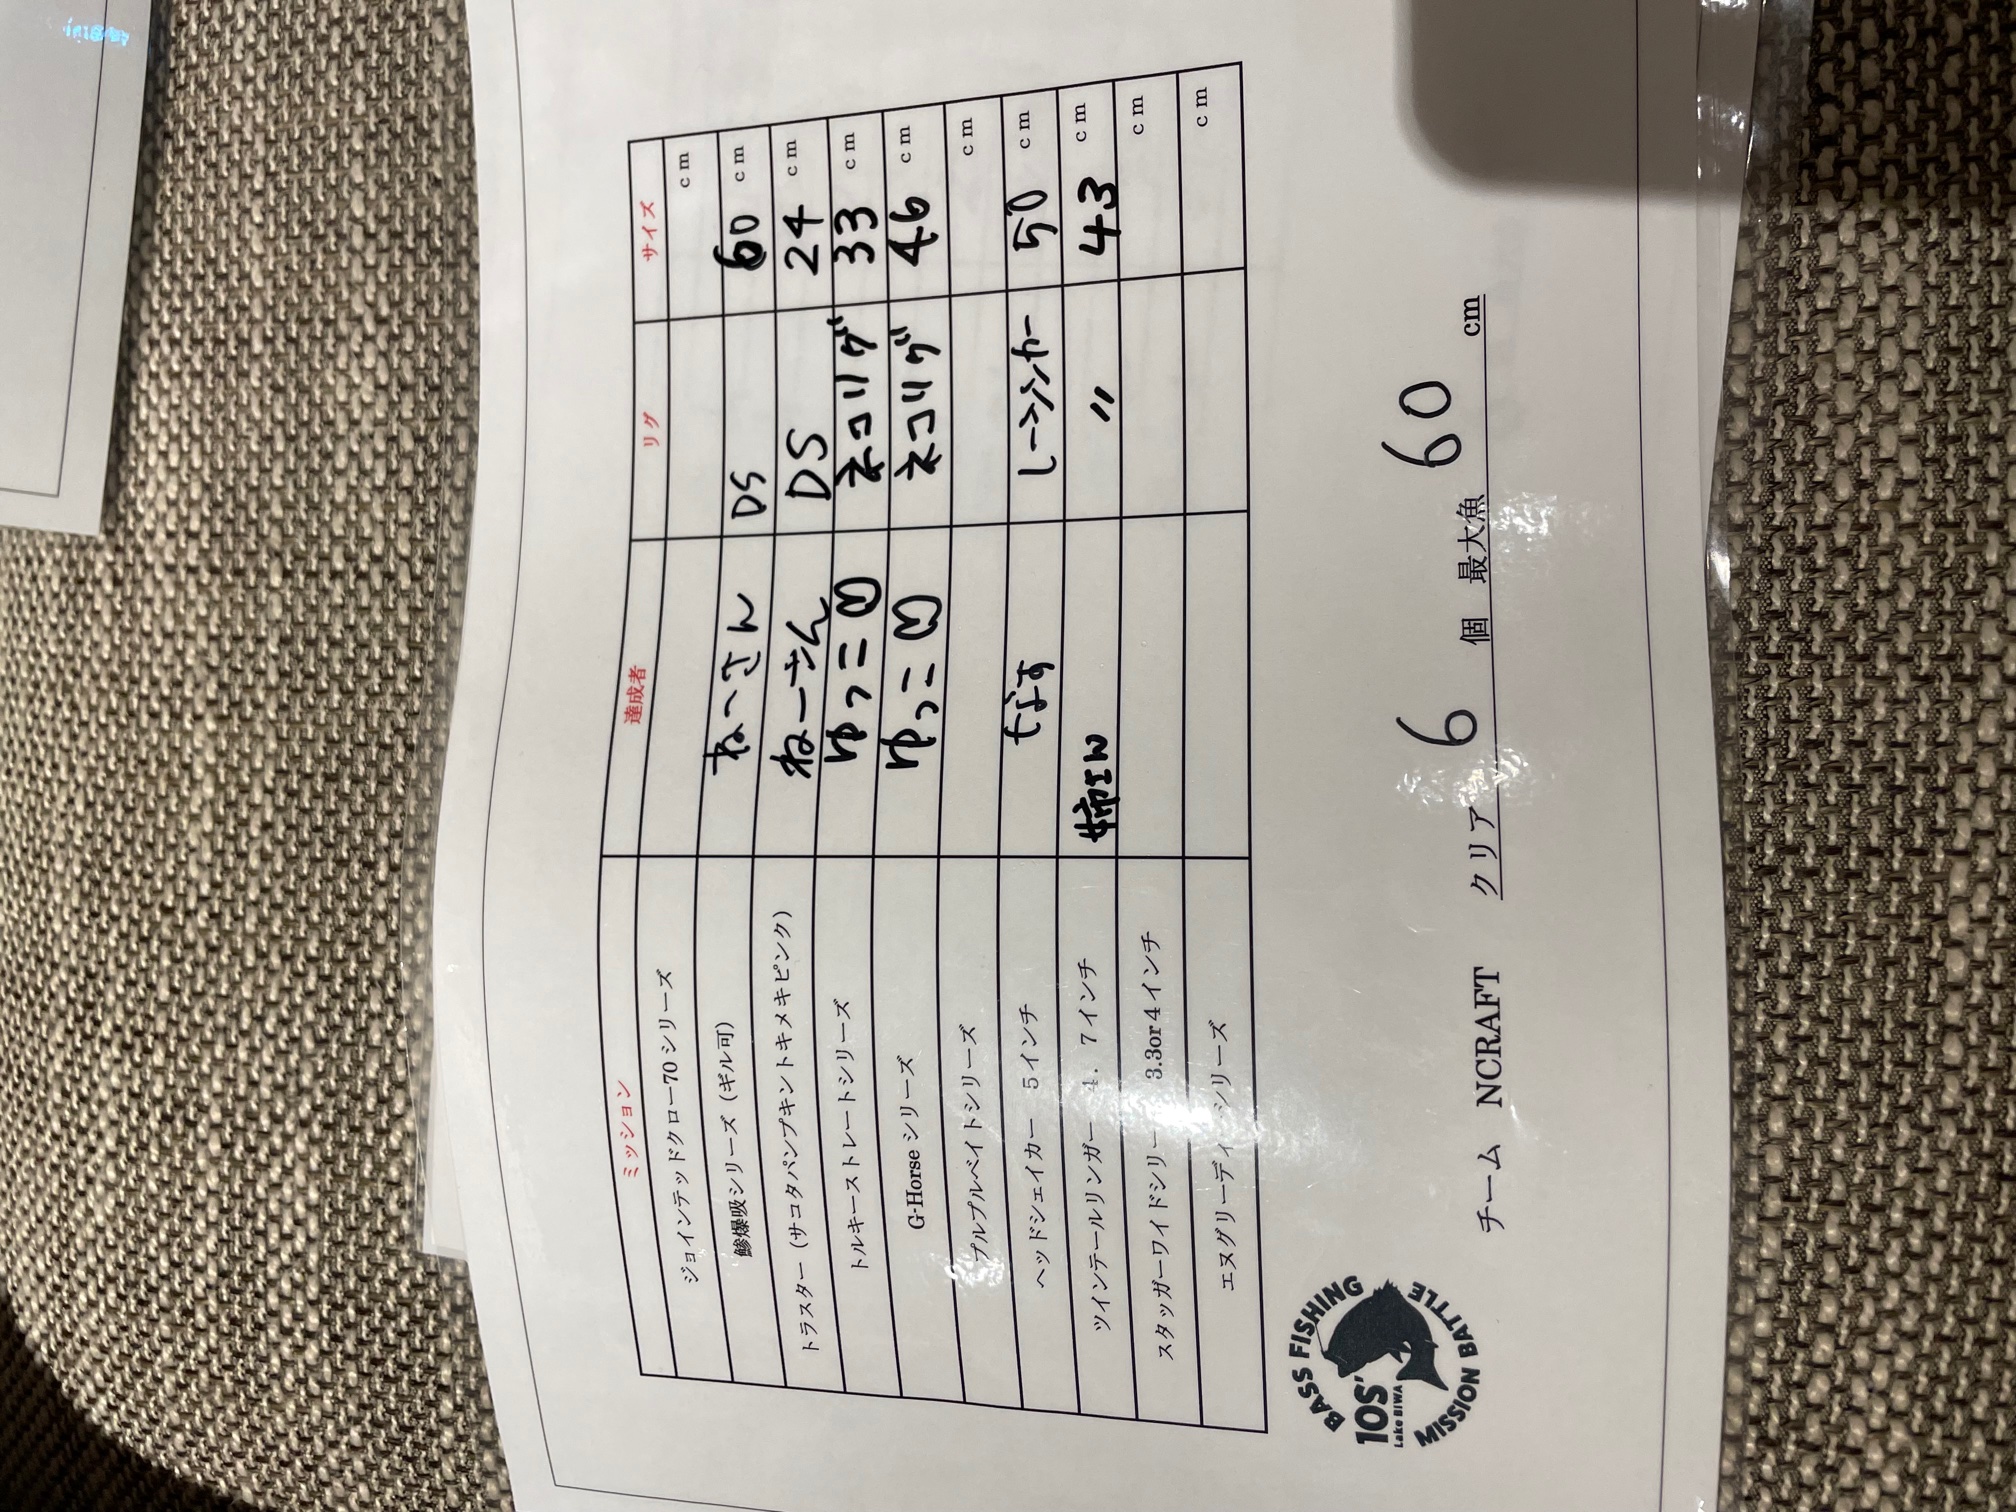 ミッション 達成者 リグ サイズ
ジョインテッドクロー70シリーズ cm
鯵爆吸シリーズ（ギル可） ねーさん DS 60 cm
トラスター（サコタパンプキントキメキピンク） ねーさん DS 24 cm
トルキーストレートシリーズ ゆっこ♡ ネコリグ 33 cm
G-Horseシリーズ ゆっこ♡ ネコリグ 46 cm
プルプルベイトシリーズ cm
ヘッドシェイカー 5インチ cm 50
ツインテールリンガー 4．7インチ 〃 43 cm
スタッガーワイドシリー 3.3or4インチ cm
エヌグリーディ シリーズ cm
チーム NCRAFT クリア 6 個 最大魚 60 cm
BASS FISHING
10S'
Lake BIWA
MISSION BATTLE